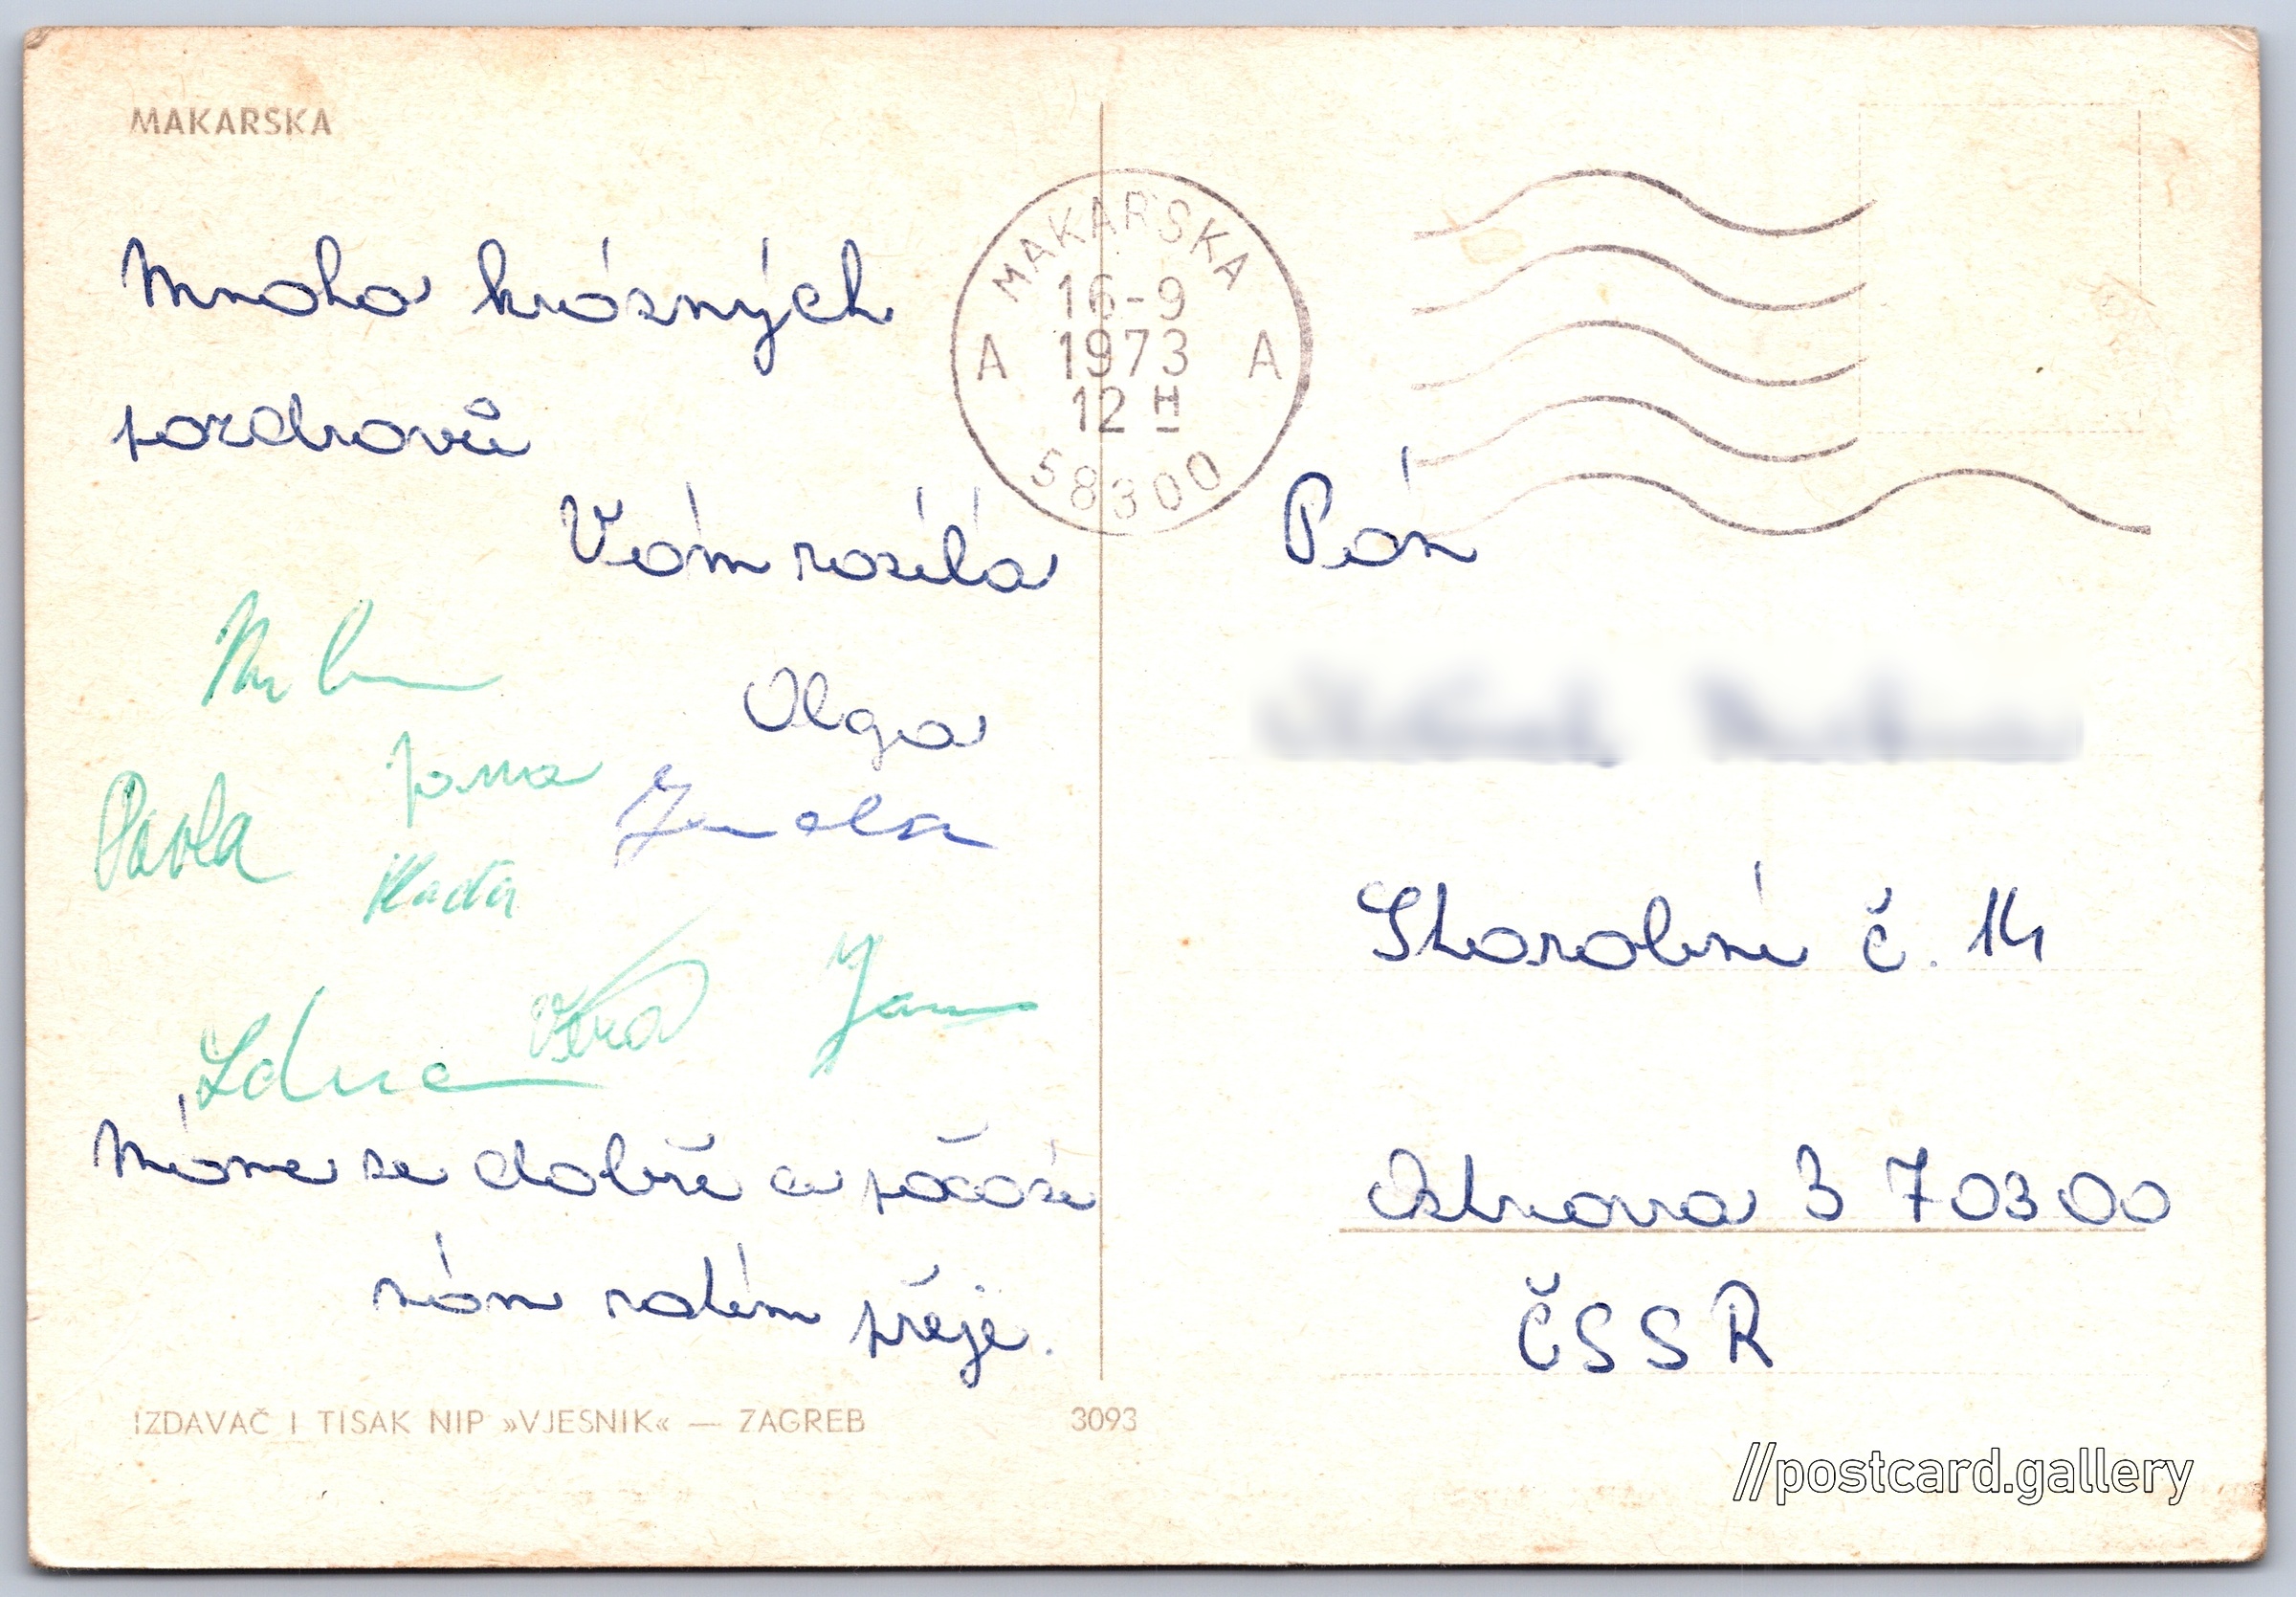 MAKARSKA
Mnoho krásných
pozdravů
Vám posílá
Olga
Milan
Jana
Pavla
Vlaďa
Zdena
Věra
Jana
Máme se dobře a počasí
nám zatím přeje.
IZDAVAČ I TISAK NIP »VJESNIK« — ZAGREB
3093
MAKARSKA
16-9
1973
12 H
A A
58300
Pán
Starobní č. 14
Ostrava 3 70300
ČSSR
//postcard.gallery